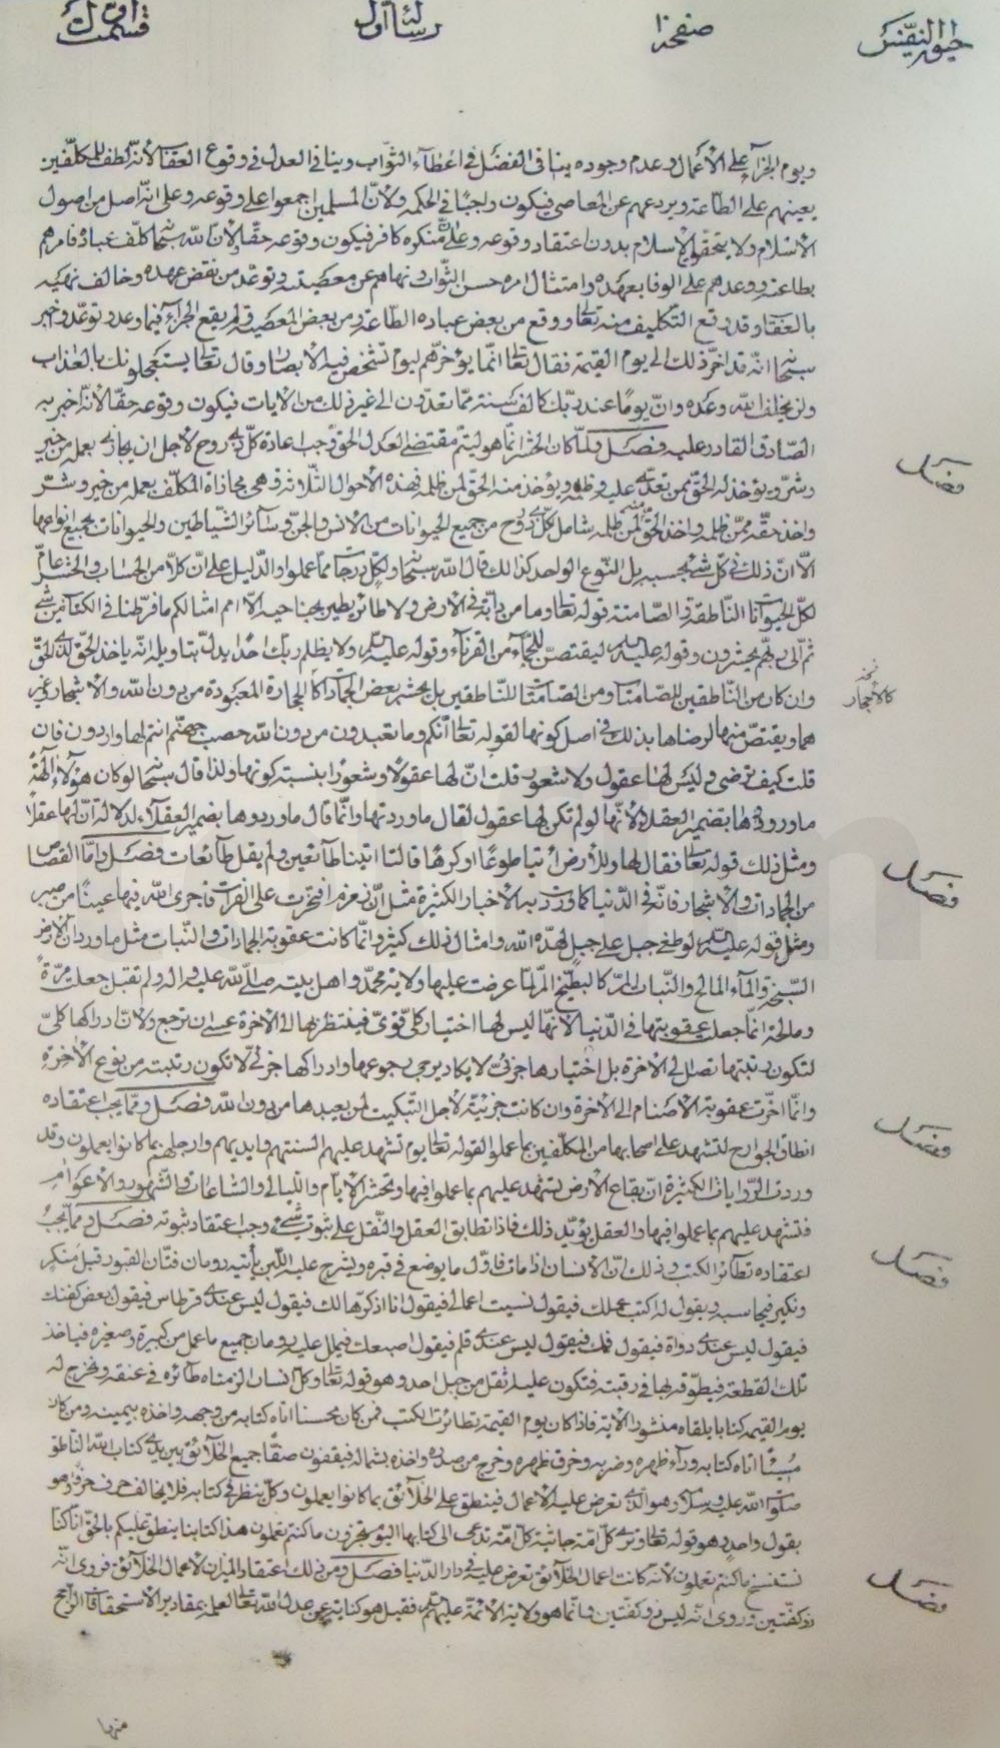 حيوة النفس صفحة ١٠ رسالة اول قسمت اول
ويوم الجزآء على الأعمال وعدم وجوده ينافى الفضل فى اعطآء الثواب وينافى العدل فى وقوع العقاب لأنه لطف للمكلّفين
يعينهم على الطاعة ويردعهم عن المعاصى فيكون واجبًا فى الحكمة ولانّ المسلمين اجمعوا على وقوعه وعلى انّه اصل من اصول
الاسلام ولا يتحقّق الاسلام بدون اعتقاد وقوعه وعلى انّ منكره كافر فيكون وقوعه حقًا لانّ الله سبحانه كلّف عباده فامرهم
بطاعته ووعدهم على الوفا بعهده وامتثال امره حسن الثواب ونهاهم عن معصيته وتوعّد من نقض عهده وخالف نهيه
بالعقاب وقد وقع التكليف منه تعالى ووقع من بعض عباده الطاعة ومن بعض المعصية ولم يقع الجزآء فيما وعد وتوعّد واخبر
سبحانه انّه قد اخّر ذلك الى يوم القيمة فقال تعالى انّما يؤخّرهم ليوم تشخص فيه الابصار وقال تعالى يستعجلونك بالعذاب
ولن يخلف الله وعده وانّ يومًا عند ربّك كالف سنة ممّا تعدّون الى غير ذلك من الآيات فيكون وقوعه حقّا لانّه اخبر به
الصّادق القادر عليه فصل ولمّا كان الحشر انّما هو ليتمّ مقتضى العدل الحقّ وجب اعادة كلّ ذى روح لاجل ان يجازى بعمله من خير
فصل
وشرّ ويؤخذ له الحقّ ممن تعدّى عليه وظلمه ويؤخذ منه الحقّ لمن ظلمه فهذه الأحوال الثّلاثة هى مجازاة المكلّف بعمله من خير وشرّ
واخذ حقّه ممّن ظلمه واخذ الحقّ منه لمن ظلمه شامل لكلّ ذى روح من جميع الحيوانات من الانس والجنّ وسآئر الشياطين والحيوانات بجميع انواعها
الّا انّ ذلك فى كلّ شئ بحسبه بل النّوع الواحد كذلك قال الله سبحانه ولكلّ درجات ممّا عملوا والدّليل على انّ كلّا من الحساب والحشر عامّ
لكلّ الحيوانات النّاطقة والصّامتة قوله تعالى وما من دآبّة فى الارض ولا طائر يطير بجناحيه الّا امم امثالكم ما فرّطنا فى الكتاب من شئ
ثمّ الى ربّهم يحشرون وقوله عليه السلم ليقتصّ للجمّآء من القرنآء وقوله عليه السلم ولا يظلم ربّك احدًا يدلّ بتاويله انّه ياخذ الحقّ لذى الحقّ
وان كان من النّاطقين للصّامتات ومن الصّامتات للنّاطقين بل يحشر بعض الجمادات كالحجارة المعبودة من دون الله والاشجار وغير
نخ كالأحجار
هما ويقتصّ منها لرضاها بذلك فى اصل كونها لقوله تعالى انّكم وما تعبدون من دون الله حصب جهنّم انتم لها واردون فان
قلت كيف ترضى وليس لها عقول ولا شعور قلت انّ لها عقولًا وشعورًا بنسبة كونها ولذا قال سبحانه لو كان هؤلاء آلهةً
ما وردوها بضمير العقلاء لأنّها لو لم تكن لها عقول لقال ما وردتها وانّما قال ما وردوها بضمير العقلآء لدلالة انّ لها عقولًا
ومثل ذلك قوله تعالى فقال لها وللأرض ائتيا طوعًا او كرهًا قالتا اتينا طآئعين ولم يقل طآئعات فصل وامّا القصاص
فصل
من الجمادات والاشجار فانّه فى الدّنيا كما وردت به الأخبار الكثيرة مثل انّ زمزم افتخرت على الفرات فاجرى الله فيها عينًا من صبر
ومثل قوله عليه السلم لو طغى جبل على جبل لهدّه الله وامثال ذلك كثير وانّما كانت عقوبة الجمادات والنّبات مثل ما ورد ان الارض
السّبخة والمآء المالح والنّبات المرّ كالبطّيخ المرّ لمّا عرضت عليها ولاية محمّد واهل بيته صلّى الله عليه واله ولم تقبل جعلت مرّةً
ومالحة انّما جعلت عقوبتها فى الدّنيا لانّها ليس لها اختيار كلّى قوىّ فينتظر بها الى الآخرة عسى ان ترجع ولا ادراكها كلّىّ
لتكون رتبتها تصل الى الآخرة بل اختيارها جزئىّ لا يكاد يرجى رجوعها وادراكها جزئىّ لا تكون رتبته من نوع الآخرة
وانّما اخّرت عقوبة الأصنام الى الآخرة وان كانت جزئيّة لأجل التبكيت لمن يعبدها من دون الله فصل وممّا يجب اعتقاده
فصل
انطاق الجوارح لتشهد على اصحابها من المكلّفين بما عملوا لقوله تعالى يوم تشهد عليهم السنتهم وايديهم وارجلهم بما كانوا يعملون وقد
وردت الرّوايات الكثيرة انّ بقاع الأرض تشهد عليهم بما عملوا فيها وتحشر الايّام واللّيالى والسّاعات والشّهور والاعوام
فتشهد عليهم بما عملوا فيها والعقل يؤيّد ذلك فاذا تطابق العقل والنّقل على ثبوت شئ وجب اعتقاد ثبوته فصل وممّا يجب
فصل
اعتقاده تطآئر الكتب وذلك انّ الأنسان اذا مات فاوّل ما يوضع فى قبره ويشرج عليه اللّبن يأتيه رومان فتّان القبور قبل منكر
ونكير فيحاسبه ويقول له اكتب عملك فيقول نسيت اعمالى فيقول انا اذكّرها لك فيقول ليس عندى قرطاس فيقول بعض كفنك
فيقول ليس عندى دواة فيقول فمك فيقول ليس عندى قلم فيقول اصبعك فيملى عليه رومان جميع ما عمل من كبيرة وصغيرة فياخذ
تلك القطعة فيطوّقه بها فى رقبته فتكون عليه اثقل من جبل احد وهو قوله تعالى وكلّ انسان الزمناه طآئره فى عنقه ونخرج له
يوم القيمة كتابا يلقاه منشورا الآية فاذا كان يوم القيمة تطائرت الكتب فمن كان محسنا اتاه كتابه من وجهه واخذه بيمينه ومن كان
مسيئًا اتاه كتابه ورآء ظهره وضربه وخرق ظهره وخرج من صدره واخذه بشماله فيقفون صفّا جميع الخلآئق بين يدى كتاب الله الناطق
صلوات الله عليه وسلامه وهو الّذى تعرض عليه الاعمال فينطق على الخلآئق بما كانوا يعملون وكلّ ينظر فى كتابه فلا يخالف حرف حرفًا وهو
يقول واحد وهو قوله تعالى وترى كلّ امّة جاثية كلّ امّة تدعى الى كتابها اليوم تجزون ما كنتم تعملون هذا كتابنا ينطق عليكم بالحقّ انّا كنّا
نستنسخ ما كنتم تعملون لأنّه كانت اعمال الخلآئق تعرض عليه فى دار الدّنيا فصل ومن ذلك اعتقاد الميزان لاعمال الخلآئق فروى انّه
فصل
ذو كفّتين وروى انّه ليس ذو كفّتين وانّما هو ولاية الأئمّة عليهم السلم فقيل هو كناية عن عدل الله تعالى لعلمه بمقادير الاستحقاقات الراجح
منها